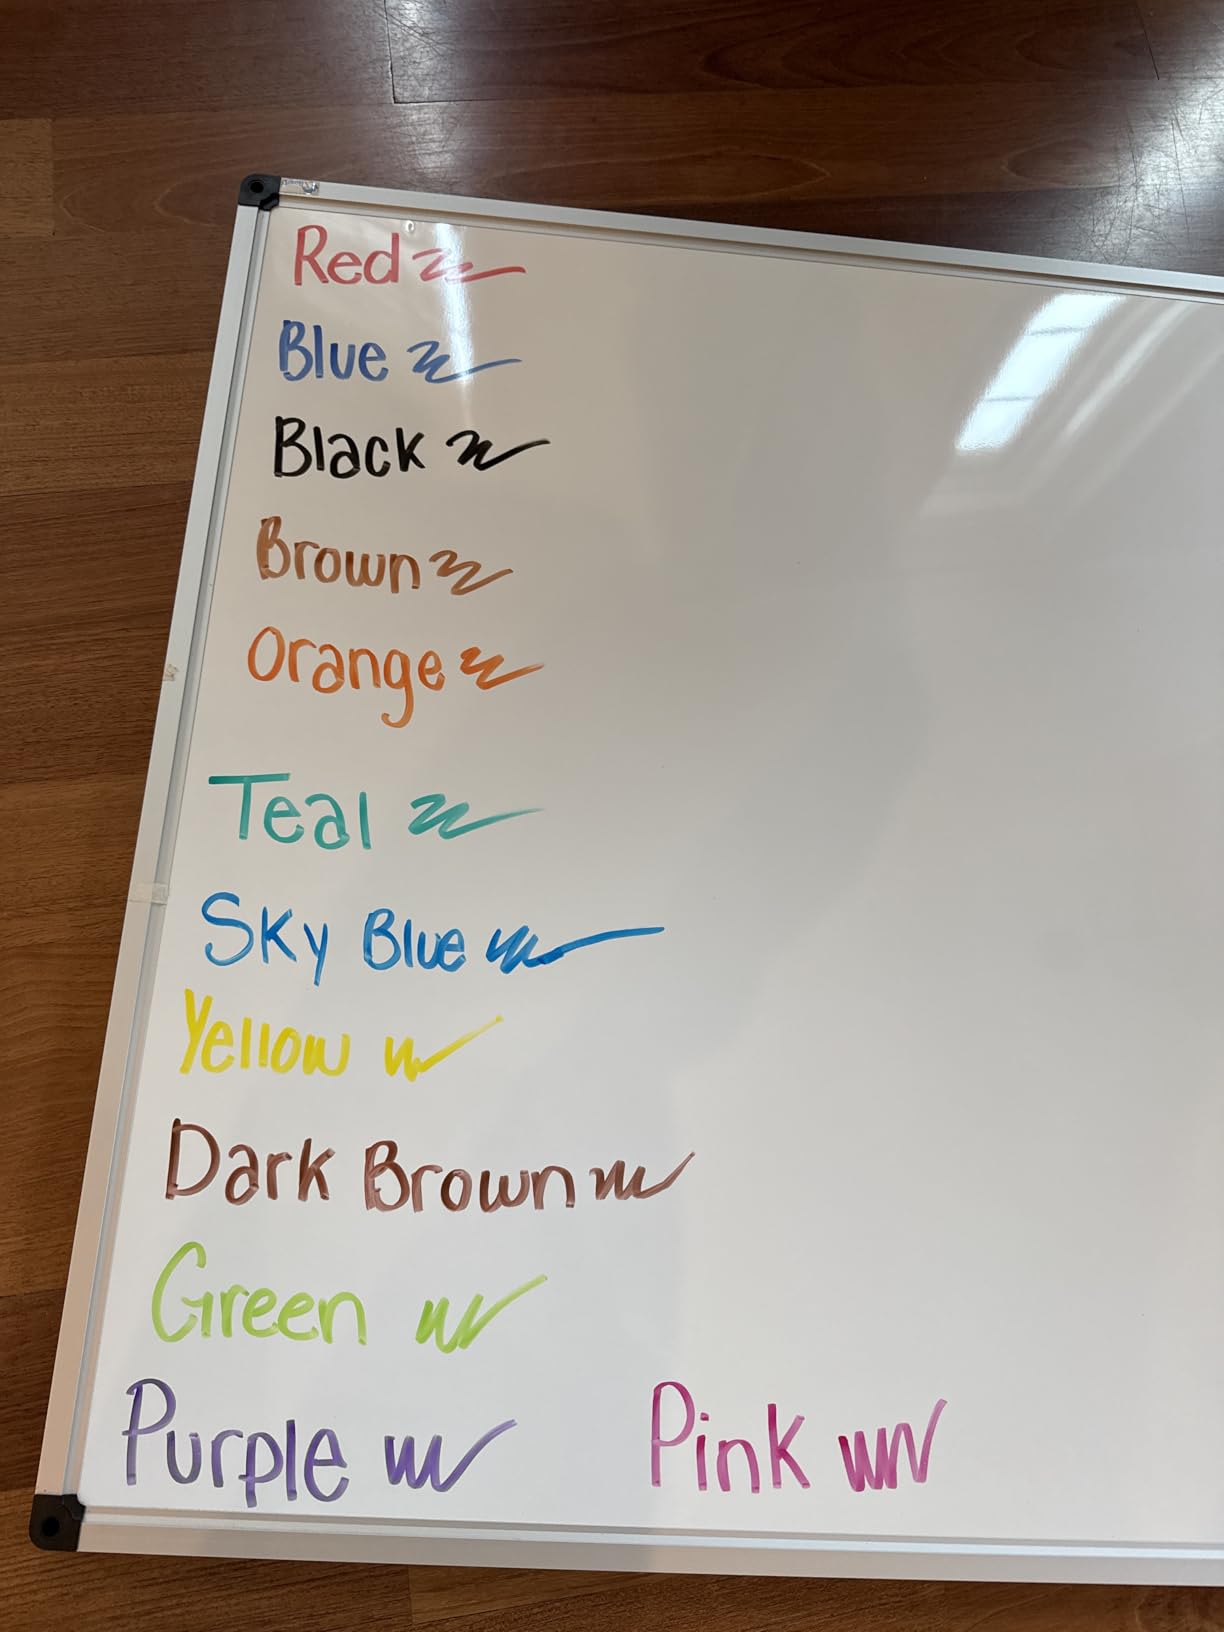 Red
Blue
Black
Brown
Orange
Teal
Sky Blue
Yellow
Dark Brown
Green
Purple Pink